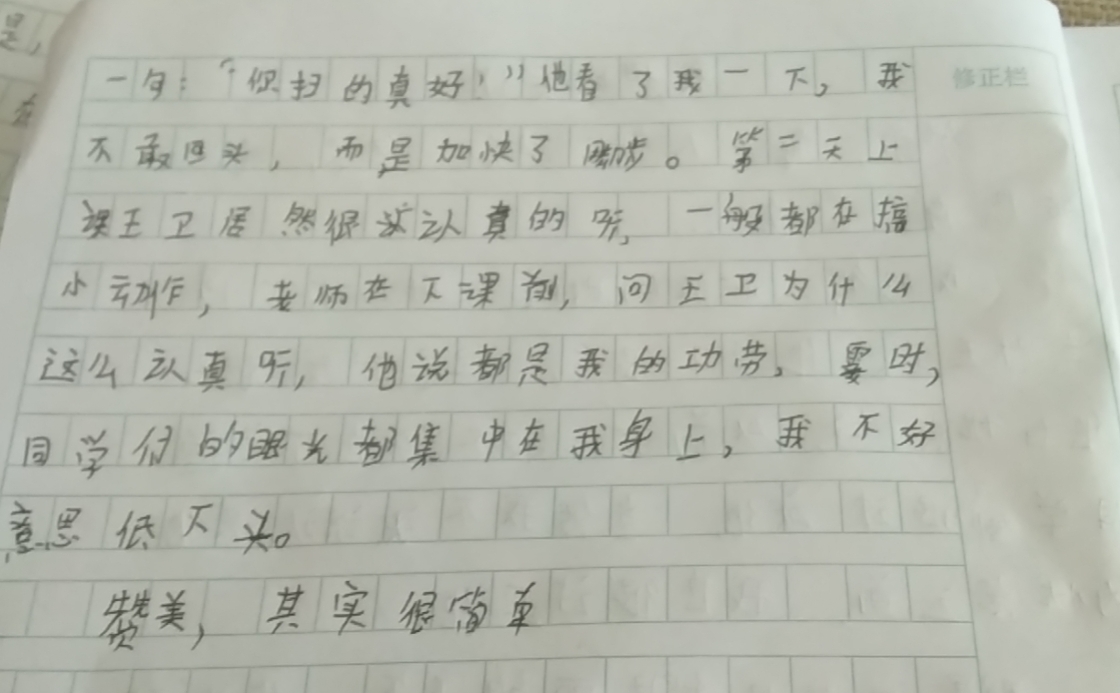 是,
一句:“你扫的真好!”他看了我一下,我
修正栏
不敢回头,而是加快了脚步。第二天上
课王卫居然很认真的听,一般都在搞
小动作,老师在下课前,问王卫为什么
这么认真听,他说都是我的功劳,霎时,
同学们的眼光都集中在我身上,我不好
意思低下头。
赞美,其实很简单